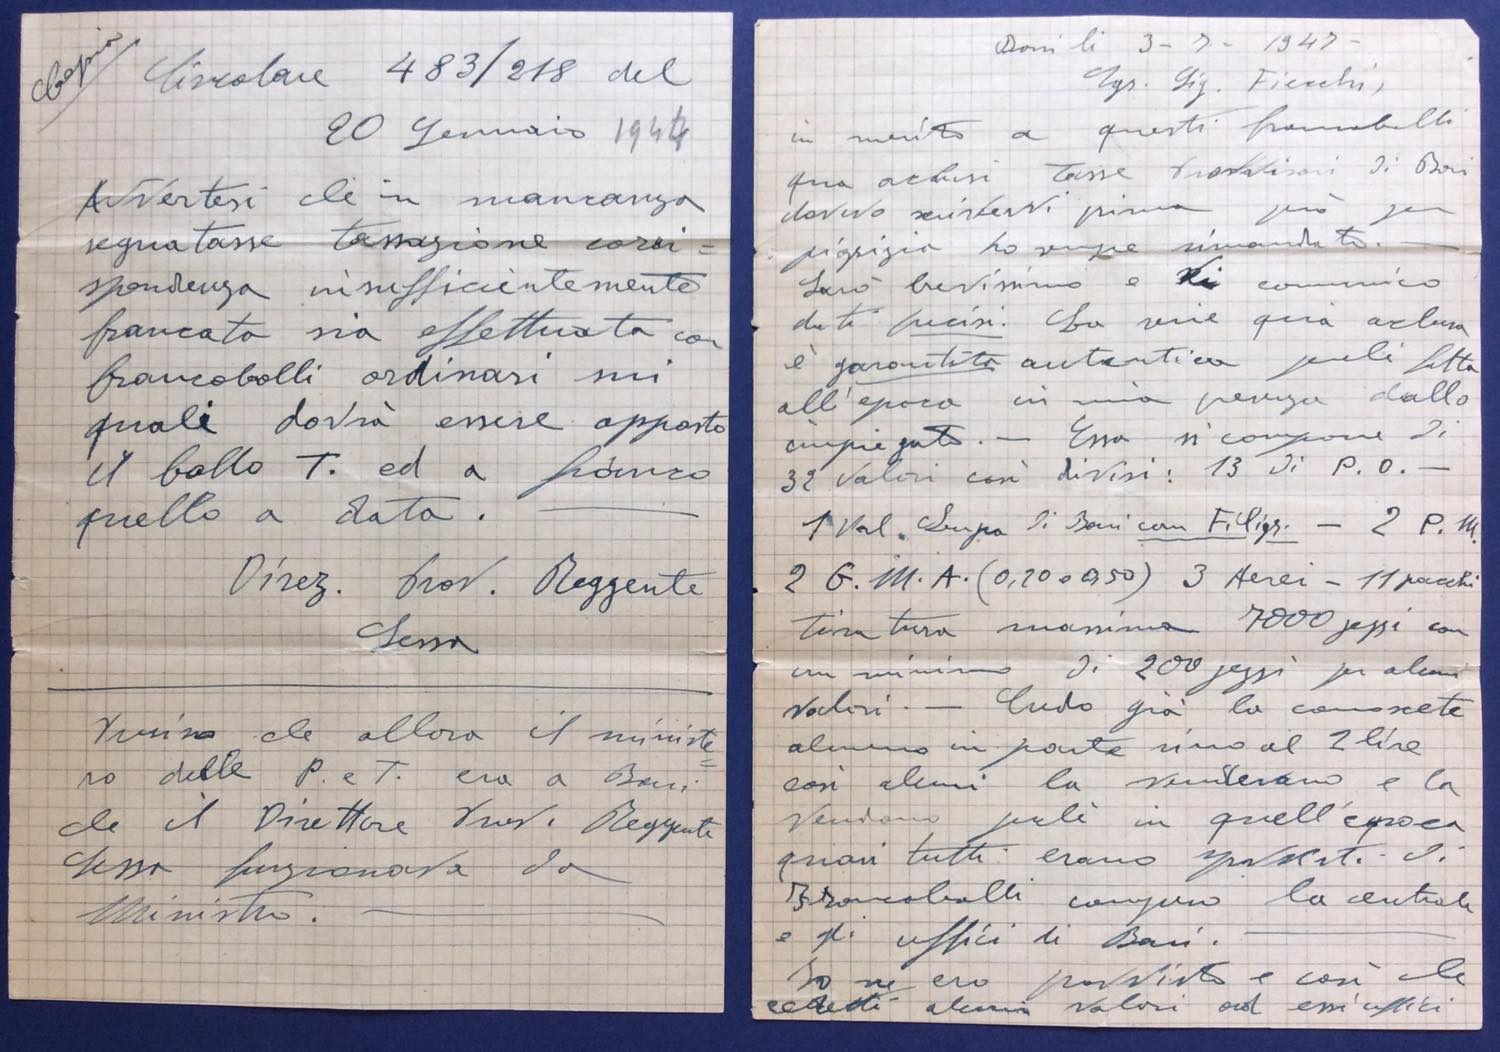 Copia
Circolare 483/218 del
20 Gennaio 1944
Avvertesi che in mancanza
segnatasse tassazione corri=
spondenza insufficientemente
francata sia effettuata con
francobolli ordinari sui
quali dovrà essere apposto
il bollo T. ed a fianco
quello a data.
Direz. Prov. Reggente
Sessa
che allora il ministe=
ro delle P. e T. era a Bari
che il Direttore Prov. Reggente
Sessa funzionava da
Ministro.
Bari li 3-7-1947-
Egr. Sig. Fiecchi,
in merito a questi francobolli
qua acclusi tasse provvisori di Bari
dovevo scrivervi prima però per
pigrizia ho sempre rimandato. —
Sarò brevissimo e vi comunico
dati precisi. La serie quia aclusa
è garantita autentica perchè fatta
all'epoca in mia presenza dallo
impiegato. — Essa si compone di
32 valori così divisi: 13 di P.O. —
1 Val. Lupa di Bari con Filigr. — 2 P.M.
2 G.M.A. (0,20 e 0,50) 3 Aerei — 11 pacchi
tiratura massima 7000 pezzi con
un minimo di 200 pezzi per alcuni
valori. — Credo già la conoscete
almeno in parte sino al 2 lire
così alcuni la vendevano e la
vendono perchè in quell'epoca
quasi tutti erano sprovvisti di
Francobolli compreso la centrale
e gli uffici di Bari.
Io ne ero provvisto e così che
cedetti alcuni valori ad essi uffici